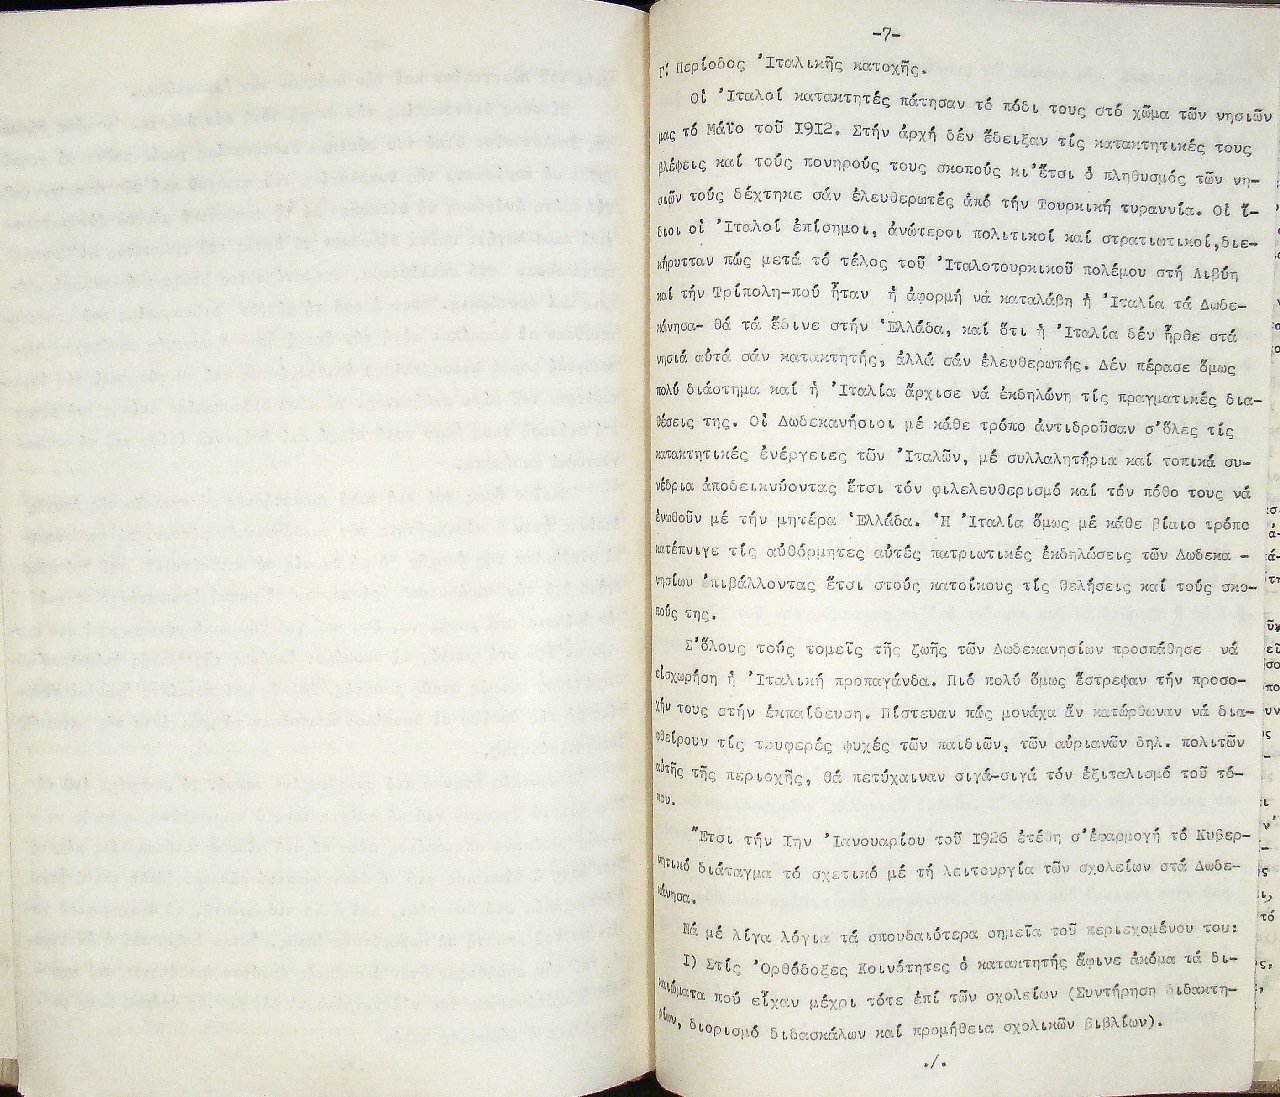 -7-
Γ! Περίοδος Ἰταλικῆς κατοχῆς.
Οἱ Ἰταλοί κατακτητές πάτησαν τό πόδι τους στό χῶμα τῶν νησιῶν
μας τό Μάϊο τοῦ 1912. Στήν ἀρχή δέν ἔδειξαν τίς κατακτητικές τους
βλέψεις καί τούς πονηρούς τους σκοπούς κι'ἔτσι ὁ πληθυσμός τῶν νη-
σιῶν τούς δέχτηκε σάν ἐλευθερωτές ἀπό τήν Τουρκική τυραννία. Οἱ ἴ-
διοι οἱ Ἰταλοί ἐπίσημοι, ἀνώτεροι πολιτικοί καί στρατιωτικοί,διε-
κήρυτταν πώς μετά τό τέλος τοῦ Ἰταλοτουρκικοῦ πολέμου στή Λιβύη
καί τήν Τρίπολη-πού ἦταν ἡ ἀφορμή νά καταλάβη ἡ Ἰταλία τά Δωδε-
κάνησα- θά τά ἔδινε στήν Ἑλλάδα, καί ὅτι ἡ Ἰταλία δέν ἦρθε στά
νησιά αὐτά σάν κατακτητής, ἀλλά σάν ἐλευθερωτής. Δέν πέρασε ὅμως
πολύ διάστημα καί ἡ Ἰταλία ἄρχισε νά ἐκδηλώνη τίς πραγματικές δια-
θέσεις της. Οἱ Δωδεκανήσιοι μέ κάθε τρόπο ἀντιδροῦσαν σ'ὅλες τίς
κατακτητικές ἐνέργειες τῶν Ἰταλῶν, μέ συλλαλητήρια καί τοπικά συ-
νέδρια ἀποδεικνύοντας ἔτσι τόν φιλελευθερισμό καί τόν πόθο τους νά
ἑνωθοῦν μέ τήν μητέρα Ἑλλάδα. Ἡ Ἰταλία ὅμως μέ κάθε βίαιο τρόπο
κατέπνιγε τίς αὐθόρμητες αὐτές πατριωτικές ἐκδηλώσεις τῶν Δωδεκα -
νησίων ἐπιβάλλοντας ἔτσι στούς κατοίκους τίς θελήσεις καί τούς σκο-
πούς της.
Σ'ὅλους τούς τομεῖς τῆς ζωῆς τῶν Δωδεκανησίων προσπάθησε νά
εἰσχωρήση ἡ Ἰταλική προπαγάνδα. Πιό πολύ ὅμως ἔστρεφαν τήν προσο-
χήν τους στήν ἐκπαίδευση. Πίστευαν πώς μονάχα ἄν κατώρθωναν νά δια-
φθείρουν τίς τρυφερές ψυχές τῶν παιδιῶν, τῶν αὐριανῶν δηλ. πολιτῶν
αὐτῆς τῆς περιοχῆς, θά πετύχαιναν σιγά-σιγά τόν ἐξιταλισμό τοῦ τό-
που.
Ἔτσι τήν Ιην Ἰανουαρίου τοῦ 1926 ἐτέθη σ'ἐφαρμογή τό Κυβερ-
νητικό διάταγμα τό σχετικό μέ τή λειτουργία τῶν σχολείων στά Δωδε-
κάνησα.
Νά μέ λίγα λόγια τά σπουδαιότερα σημεῖα τοῦ περιεχομένου του:
Ι) Στίς Ὀρθόδοξες Κοινότητες ὁ κατακτητής ἄφινε ἀκόμα τά δι-
καιώματα πού εἶχαν μέχρι τότε ἐπί τῶν σχολείων (Συντήρηση διδακτη-
ρίων, διορισμό διδασκάλων καί προμήθεια σχολικῶν βιβλίων).
./.